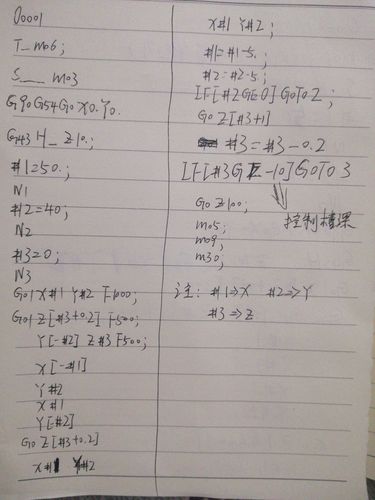 O0001
T_ m06;
S___ m03
G90G54G0X0.Y0.
G43 H_ Z10.;
#1=50.;
N1
#2=40;
N2
#3=0;
N3
G01 X#1 Y#2 F1000;
G01 Z[#3+0.2] F500;
Y[-#2] Z#3 F500;
X[-#1]
Y#2
X#1
Y[-#2]
G0 Z[#3+0.2]
X#1 Y#2
X#1 Y#2;
#1=#1-5.;
#2=#2-5;
IF[#2GE0]GOTO2;
G0 Z[#3+1]
#3=#3-0.2
[IF[#3GE-10]GOTO3
G0 Z100;
控制槽深
m05;
m09;
m30;
注: #1⇒X #2⇒Y
#3⇒Z